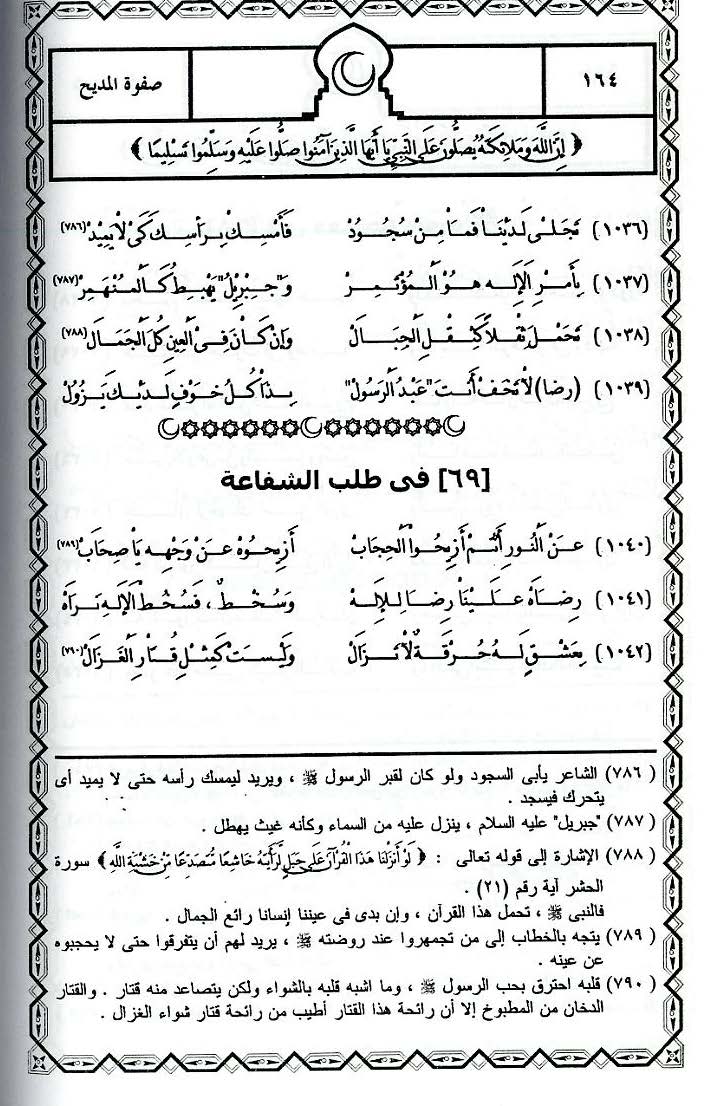 ١٦٤
صفوة المديح
﴿ إِنَّ اللَّهَ وَمَلَائِكَتَهُ يُصَلُّونَ عَلَى النَّبِيِّ يَا أَيُّهَا الَّذِينَ آمَنُوا صَلُّوا عَلَيْهِ وَسَلِّمُوا تَسْلِيمًا ﴾
(١٠٣٦) تَجَلَّى لَدَيْنَا فَمَا مِنْ سُجُودْ فَأَمْسِكْ بِرَأْسِكَ كَىْ لاَ يَمِيدْ (٧٨٦)
(١٠٣٧) بِأَمْرِ الْإِلَهِ هُوَ الْمُؤْتَمِرْ وَ"جِبْرِيلُ" يَهْبِطُ كَالْمُنْهَمِرْ (٧٨٧)
(١٠٣٨) تَحَمَّلَ ثِقْلاً كَثِقْلِ الْجِبَالْ وَإِنْ كَانَ فِى الْعَيْنِ كُلَّ الْجَمَالْ (٧٨٨)
(١٠٣٩) (رضا) لاَ تَخَفْ أَنْتَ "عَبْدُ الرَّسُولْ" بِذَا كُلُّ خَوْفٍ لَدَيْكَ يَزُولْ
[٦٩] فى طلب الشفاعة
(١٠٤٠) عَنِ النُّورِ أَنْتُمْ أَزِيحُوا الْحِجَابْ أَزِيحُوهُ عَنْ وَجْهِهِ يَا صِحَابْ (٧٨٩)
(١٠٤١) رِضَاهُ عَلَيْنَا رِضَا لِلإِلهْ وَسُخْطٌ ، فَسُخْطَ الْإِلَهِ نَرَاهْ
(١٠٤٢) بِعَشْقٍ لَهُ حُرْقَةٌ لاَ تَزَالْ وَلَيْسَتْ كَمِثْلِ قُتَارِ الْغَزَالْ (٧٩٠)
( ٧٨٦) الشاعر يأبى السجود ولو كان لقبر الرسول ﷺ ، ويريد ليمسك رأسه حتى لا يميد أى
يتحرك فيسجد .
( ٧٨٧) "جبريل" عليه السلام ، ينزل عليه من السماء وكأنه غيث يهطل .
( ٧٨٨) الإشارة إلى قوله تعالى : ﴿ لَوْ أَنزَلْنَا هَذَا الْقُرْآنَ عَلَى جَبَلٍ لَّرَأَيْتَهُ خَاشِعًا مُّتَصَدِّعًا مِّنْ خَشْيَةِ اللَّهِ ﴾ سورة
الحشر آية رقم (٢١) .
فالنبى ﷺ ، تحمل هذا القرآن ، وإن بدى فى عيننا إنسانا رائع الجمال .
( ٧٨٩) يتجه بالخطاب إلى من تجمهروا عند روضته ﷺ ، يريد لهم أن يتفرقوا حتى لا يحجبوه
عن عينه .
( ٧٩٠) قلبه احترق بحب الرسول ﷺ ، وما اشبه قلبه بالشواء ولكن يتصاعد منه قتار . والقتار
الدخان من المطبوخ إلا أن رائحة هذا القتار أطيب من رائحة قتار شواء الغزال .